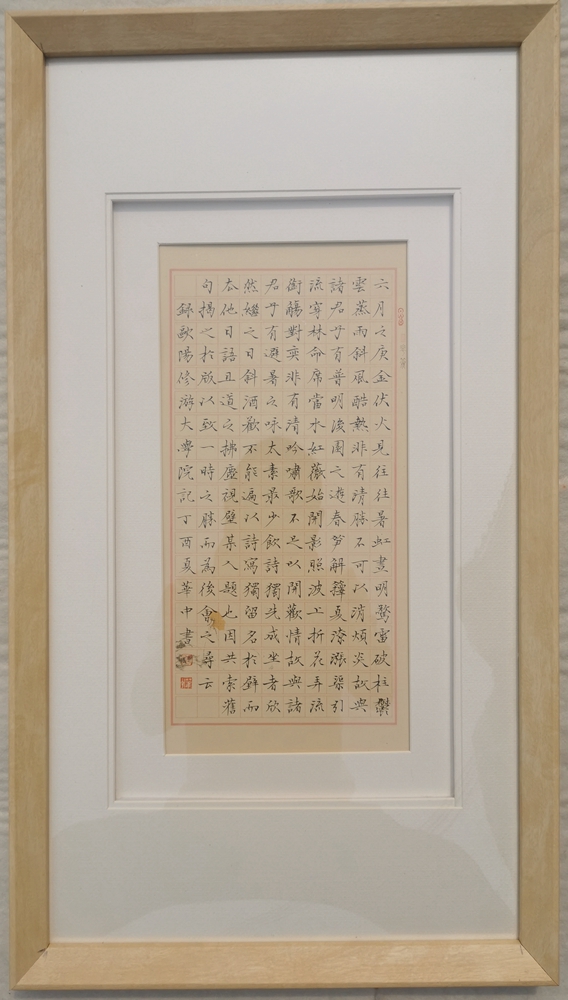 六月之庚金伏火見往往暑虹晝明驚雷破柱鬱
雲蒸雨斜風酷熱非有清勝不可以消煩炎故與
諸君子有普明後園之遊春笋解籜夏潦漲渠引
流穿林命席當水紅薇始開影照波上折花弄流
銜觴對奕非有清吟嘯歌不足以開歡情故與諸
君子有避暑之咏太素最少飲詩獨先成坐者欣
然繼之日斜酒歡不能遍以詩寫獨留名於壁而
去他日語且道之拂塵視壁某人題也因共索舊
句揭之於版以致一時之勝而為後會之尋云
錄歐陽修游大學院記丁酉夏華中書